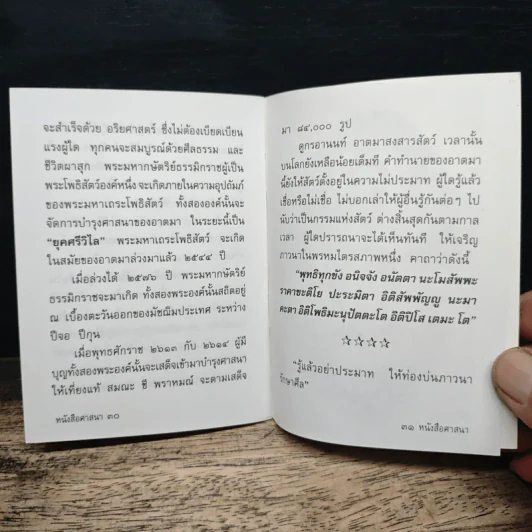 จะสำเร็จด้วย อริยศาสตร์ ซึ่งไม่ต้องเบียดเบียน
แรงผู้ใด ทุกคนจะสมบูรณ์ด้วยศีลธรรม และ
ชีวิตผาสุก พระมหากษัตริย์ธรรมิกราชผู้เป็น
พระโพธิสัตว์องค์หนึ่ง จะเกิดภายในความอุปถัมภ์
ของพระมหาเถระโพธิสัตว์ ทั้งสององค์นั้นจะ
จัดการบำรุงศาสนาของอาตมา ในระยะนี้เป็น
"ยุคศรีวิไล" พระมหาเถระโพธิสัตว์ จะเกิด
ในสมัยของอาตมาล่วงมาแล้ว ๒๕๔๔ ปี
เมื่อล่วงได้ ๒๕๗๖ ปี พระมหากษัตริย์
ธรรมิกราชจะมาเกิด ทั้งสององค์นั้นสถิตอยู่
ณ เบื้องตะวันออกของมัชฌิมประเทศ ระหว่าง
ปีจอ ปีกุน
เมื่อพุทธศักราช ๒๖๑๓ กับ ๒๖๑๔ ผู้มี
บุญทั้งสองพระองค์นั้นจะเสด็จเข้ามาบำรุงศาสนา
ให้เที่ยงแท้ สมณะ ชี พราหมณ์ จะตามเสด็จ
หนังสือศาสนา ๓๐
มา ๘๔,๐๐๐ รูป
ดูกรอานนท์ อาตมาสงสารสัตว์ เวลานั้น
บนโลกยังเหลือน้อยเต็มที คำทำนายของอาตมา
นี้ยังให้สัตว์ตั้งอยู่ในความไม่ประมาท ผู้ใดรู้แล้ว
เชื่อหรือไม่เชื่อ ไม่บอกเล่าให้ผู้อื่นรู้กันต่อๆ ไป
นับว่าเป็นกรรมแห่งสัตว์ ต่างสิ้นสุดกันตามกาล
เวลา ผู้ใดปรารถนาจะได้เห็นทันที ให้เจริญ
ภาวนาในพรหมไตรสภาพหนึ่ง คาถาว่าดังนี้
"พุทธิทุกขัง อนิจจัง อนัตตา นะโมสัพพะ
ราคาขะติโย ปะระมิตา อิติสัพพัญญู นะมา
คะตา อิติโพธิมะนุปัตตะโต อิติปิโส เตมะ โต"
☆☆☆☆
"รู้แล้วอย่าประมาท ให้ท่องบ่นภาวนา
รักษาศีล"
๓๑ หนังสือศาสนา